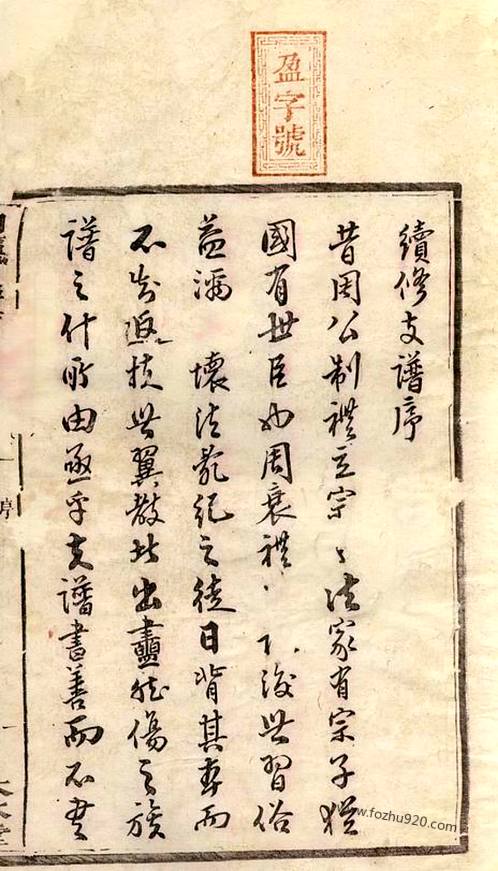 盈字號
續修支譜序
昔周公制禮立宗〻法家有宗子猶
國有世臣也周衰禮 下後世習俗
益漓 壞法亂紀之徒日背其本而
不知返 世翼教 出盡然傷之族
譜之什所由亟乎支譜書善而不書
www.fozhu920.com